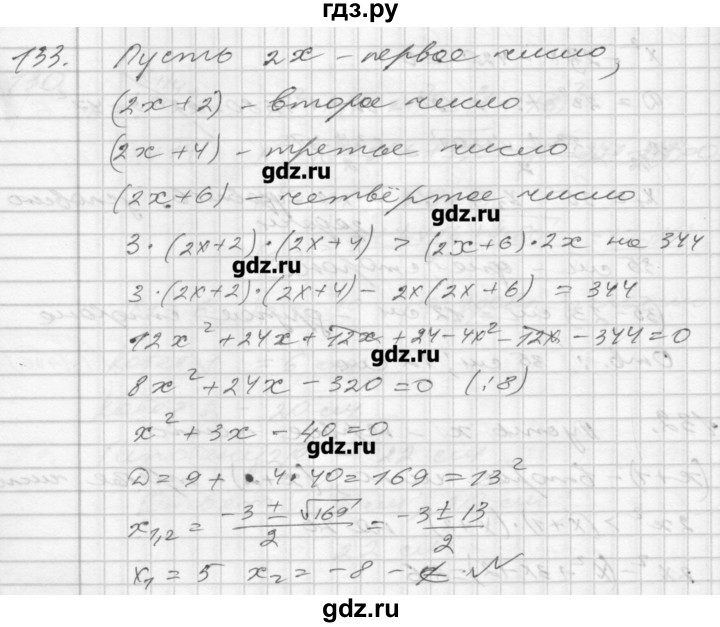 гдз.ру
133. Пусть 2x - первое число,
(2x+2) - второе число
(2x+4) - третье число
gdz.ru
(2x+6) - четвёртое число
gdz.ru
3·(2x+2)·(2x+4) > (2x+6)·2x на 344
gdz.ru
3·(2x+2)·(2x+4) - 2x(2x+6) = 344
12x²+24x+12x+24-4x²-12x-344=0
gdz.ru
8x²+24x-320=0 (:8)
x²+3x-40=0
gdz.ru
D=9+4·40=169=13²
x₁,₂ = (-3±√169)/2 = (-3±13)/2
x₁=5 x₂=-8 - ∉ N
gdz.ru